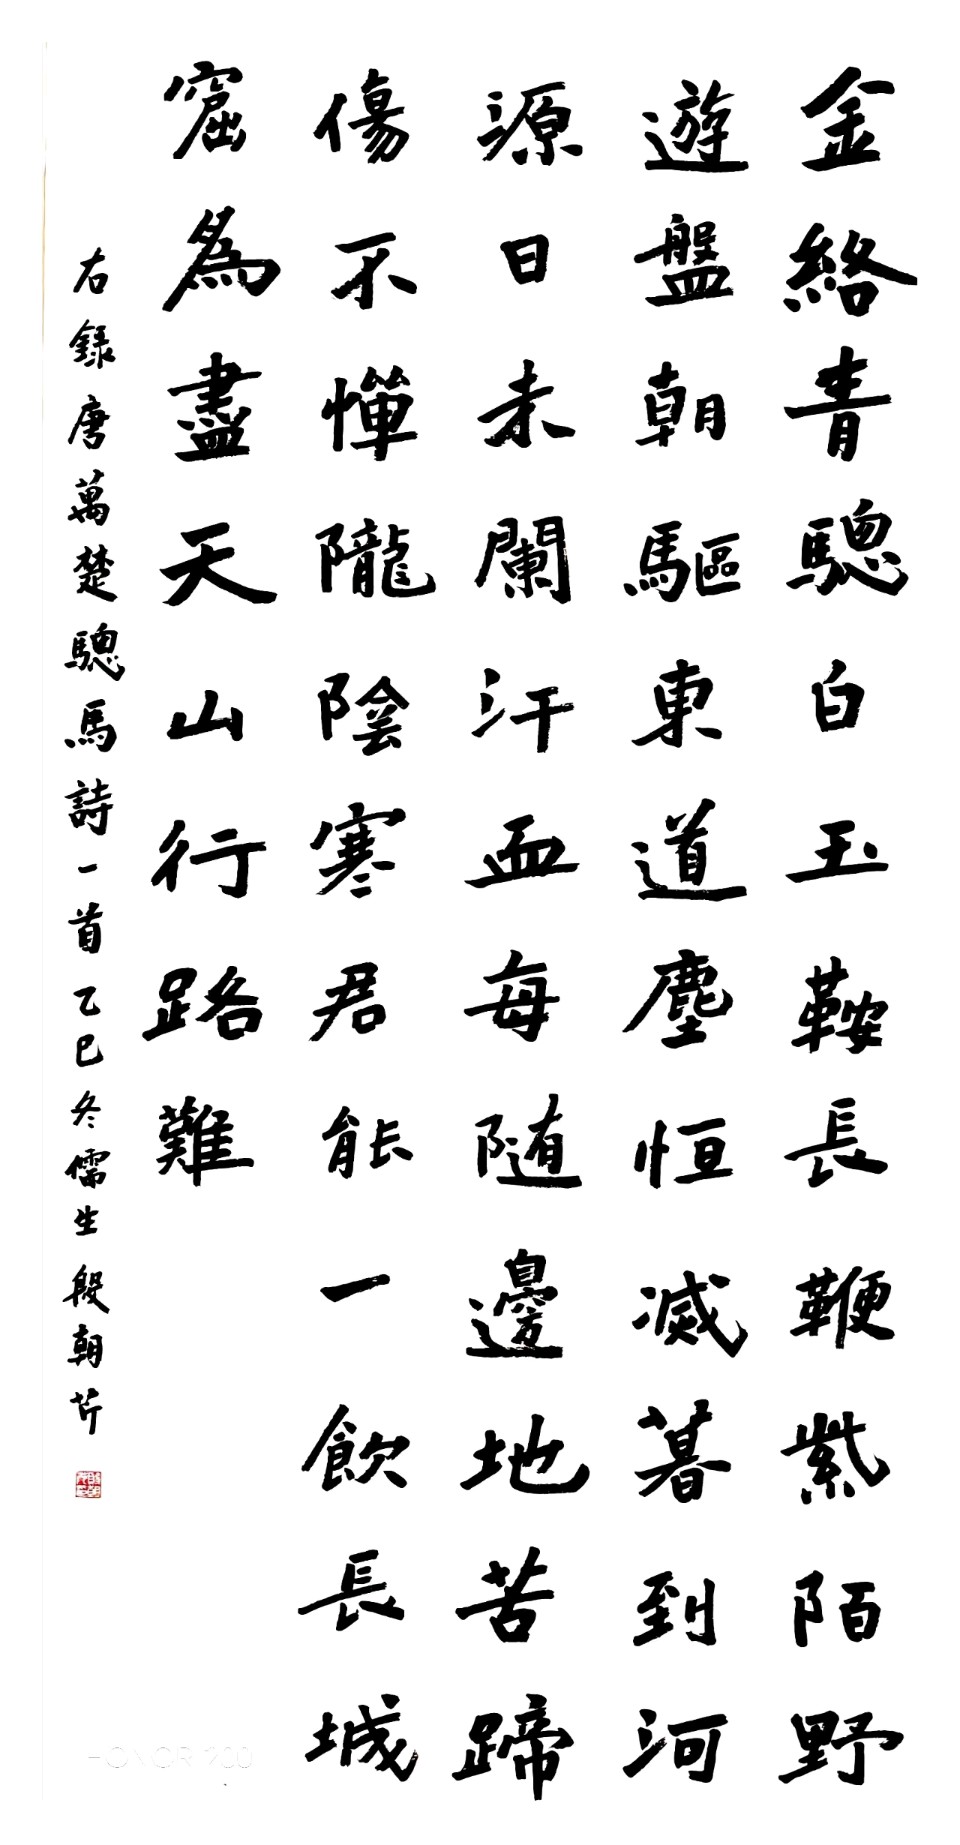 金絡青驄白玉鞍長鞭紫陌野
遊盤朝驅東道塵恒滅暮到河
源日未闌汗血每随邊地苦蹄
傷不憚隴陰寒君能一飲長城
窟為盡天山行路難
右録唐萬楚驄馬詩一首乙巳冬儒生殷朝芹
HONOR 200